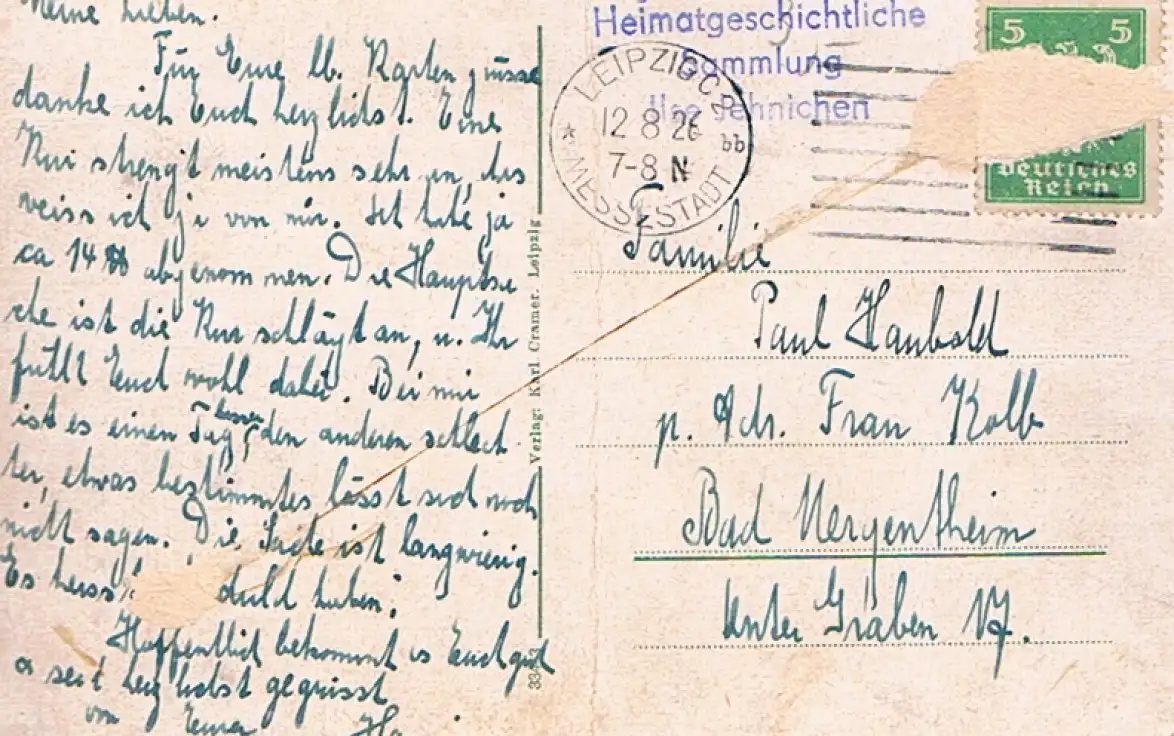 Meine Lieben.
Für Eure lb. Kartengrüsse
danke ich Euch herzlichst. Eine
Kur strengt meistens sehr an, das
weiss ich ja von mir. Ich habe ja
ca 14 ℔ abgenommen. Die Hauptsa
che ist die Kur schlägt an, u. Ihr
fühlt Euch wohl dabei. Bei mir
ist es einen Tag besser, den anderen schlech
ter, etwas bestimmtes lässt sich noch
nicht sagen. Die Sache ist langwierig.
Es heisst duld haben.
Hoffentlich bekommt es Euch gut
seit herzlichst gegrüsst
von Eurer
Verlag: Karl Cramer, Leipzig
334
Heimatgeschichtliche
Sammlung
Ilse Jehnichen
LEIPZIG C2
12 8 26
bb
7-8 N
MESSESTADT
5 5
Deutsches
Reich
Familie
Paul Haubold
p. Adr. Frau Kolb
Bad Mergentheim
Unter Gräben 17.